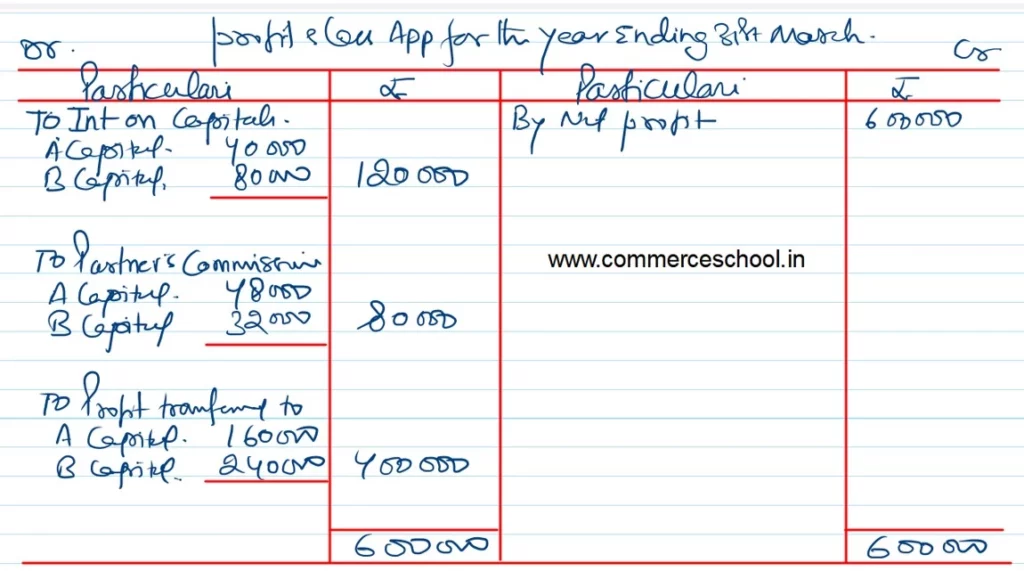 Profit & Loss App for the year Ending 31st March.
Dr. Cr
Particulars ₹ Particulars ₹
To Int on Capitals. By Net profit 600000
A Capital. 40000
B Capital. 80000 120000
To Partner's Commission
www.commerceschool.in
A Capital. 48000
B Capital 32000 80000
To Profit transferred to
A Capital. 160000
B Capital. 240000 400000
600000 600000